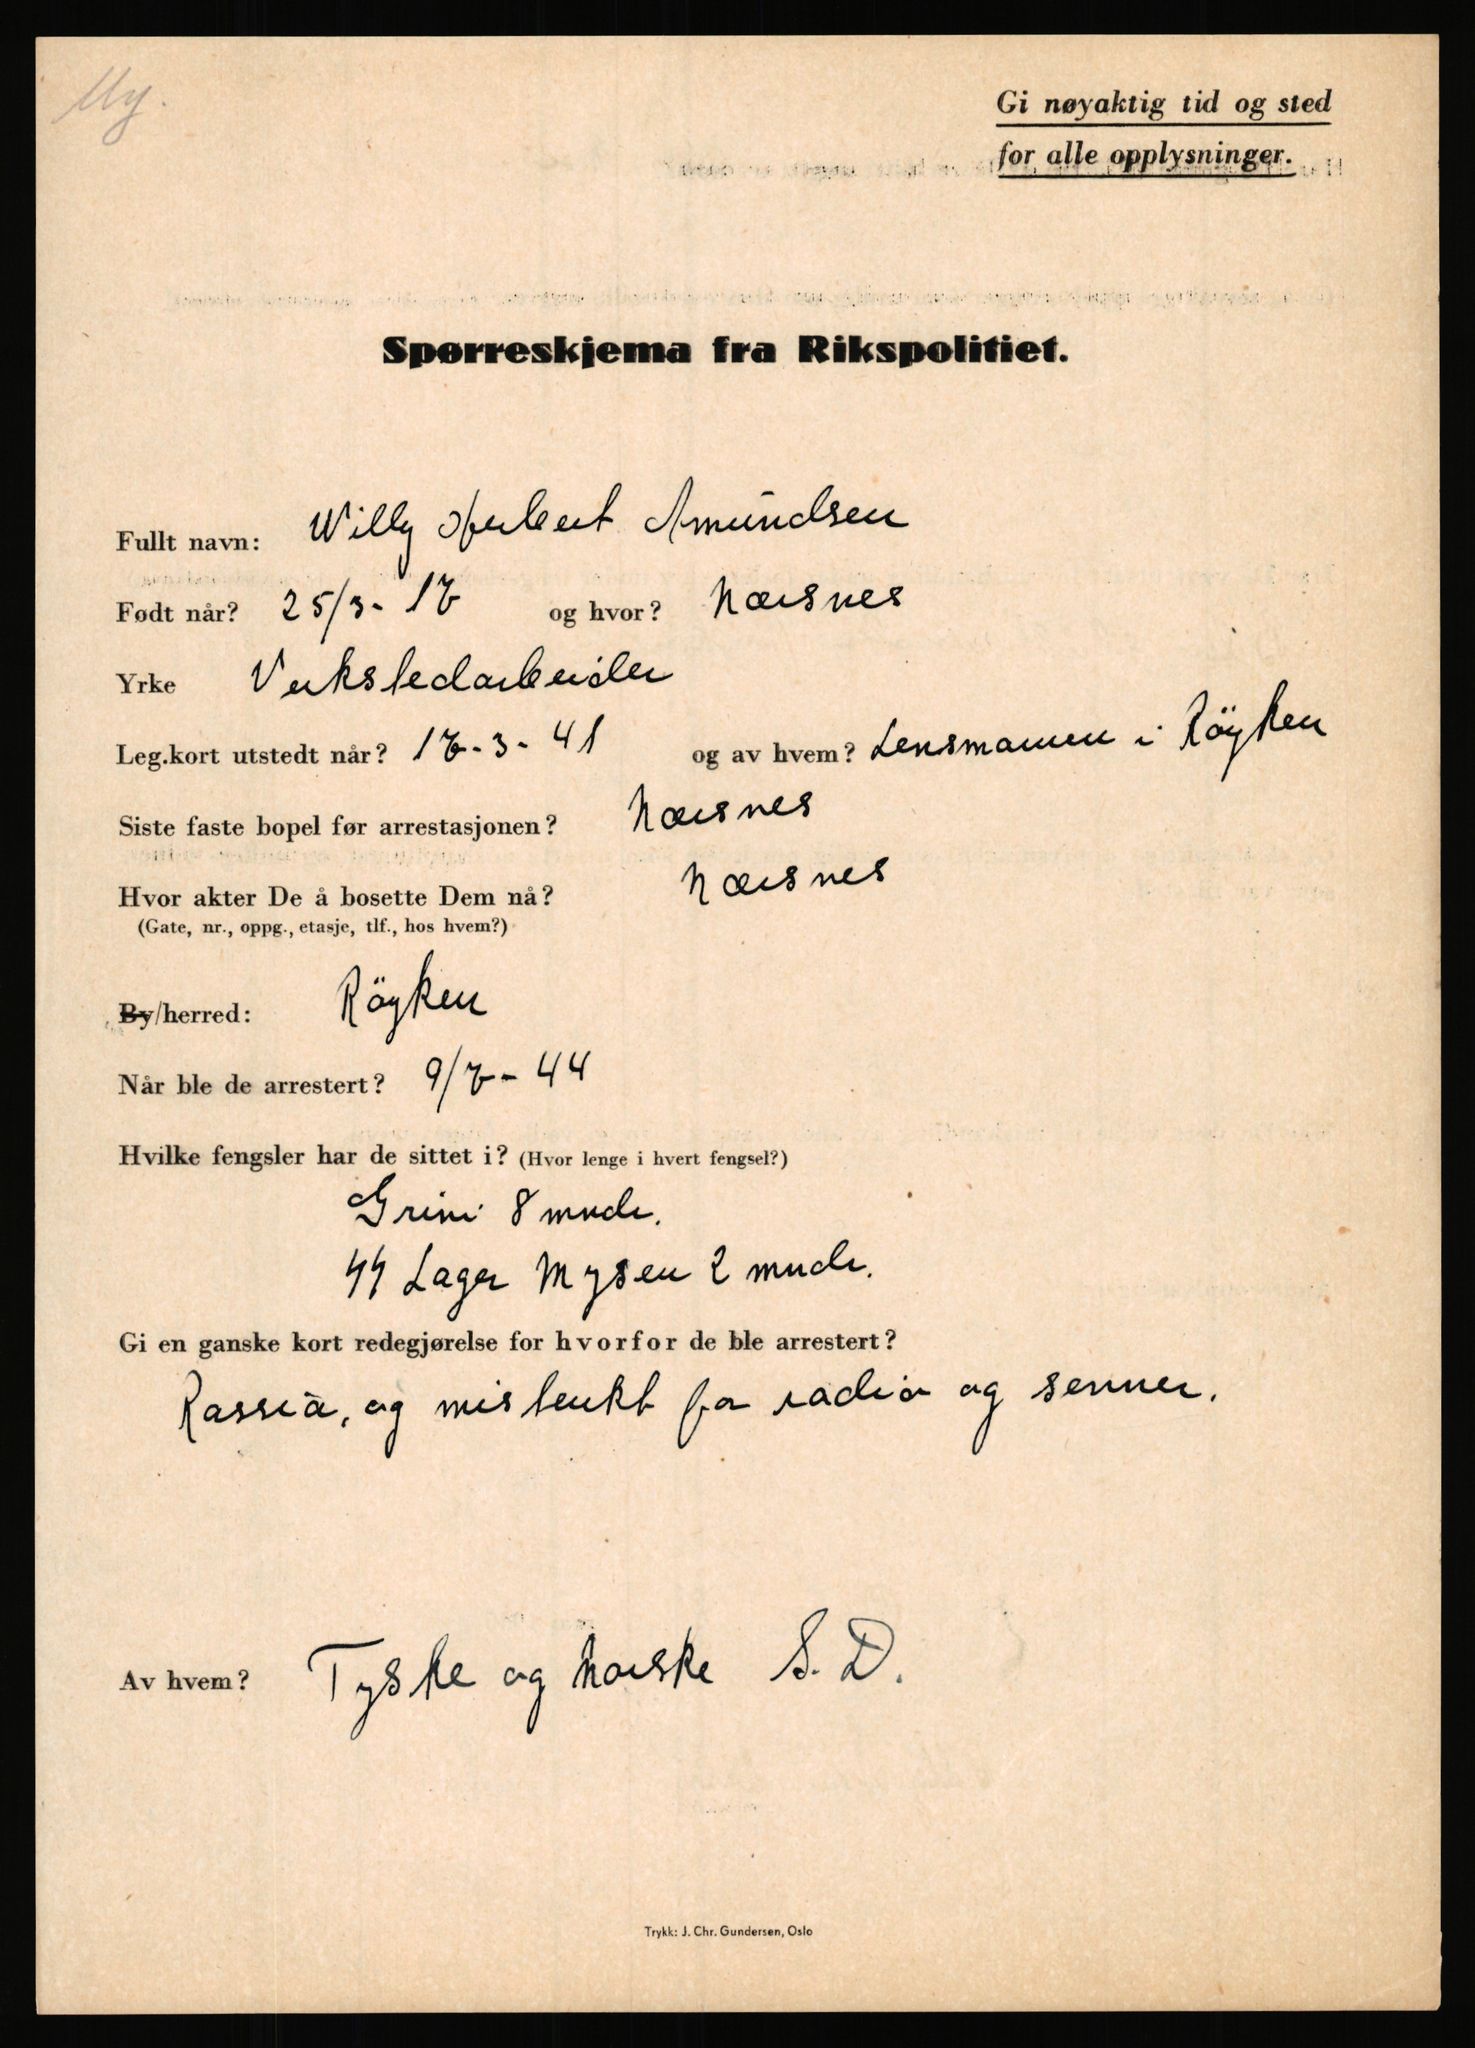 My.
Gi nøyaktig tid og sted
for alle opplysninger.
Spørreskjema fra Rikspolitiet.
Fullt navn: Willy Herbert Amundsen
Født når? 25/3-17 og hvor? Nærsnes
Yrke Verkstedarbeider
Leg.kort utstedt når? 17-3-41 og av hvem? Lensmannen i Röyken
Siste faste bopel før arrestasjonen? Nærsnes
Hvor akter De å bosette Dem nå? Nærsnes
(Gate, nr., oppg., etasje, tlf., hos hvem?)
By/herred: Röyken
Når ble de arrestert? 9/7-44
Hvilke fengsler har de sittet i? (Hvor lenge i hvert fengsel?)
Grini 8 mndr.
SS Lager Mysen 2 mndr.
Gi en ganske kort redegjørelse for hvorfor de ble arrestert?
Rassia, og mistenkt for radio og senner.
Av hvem? Tyske og Norske S.D.
Trykk: J. Chr. Gundersen, Oslo